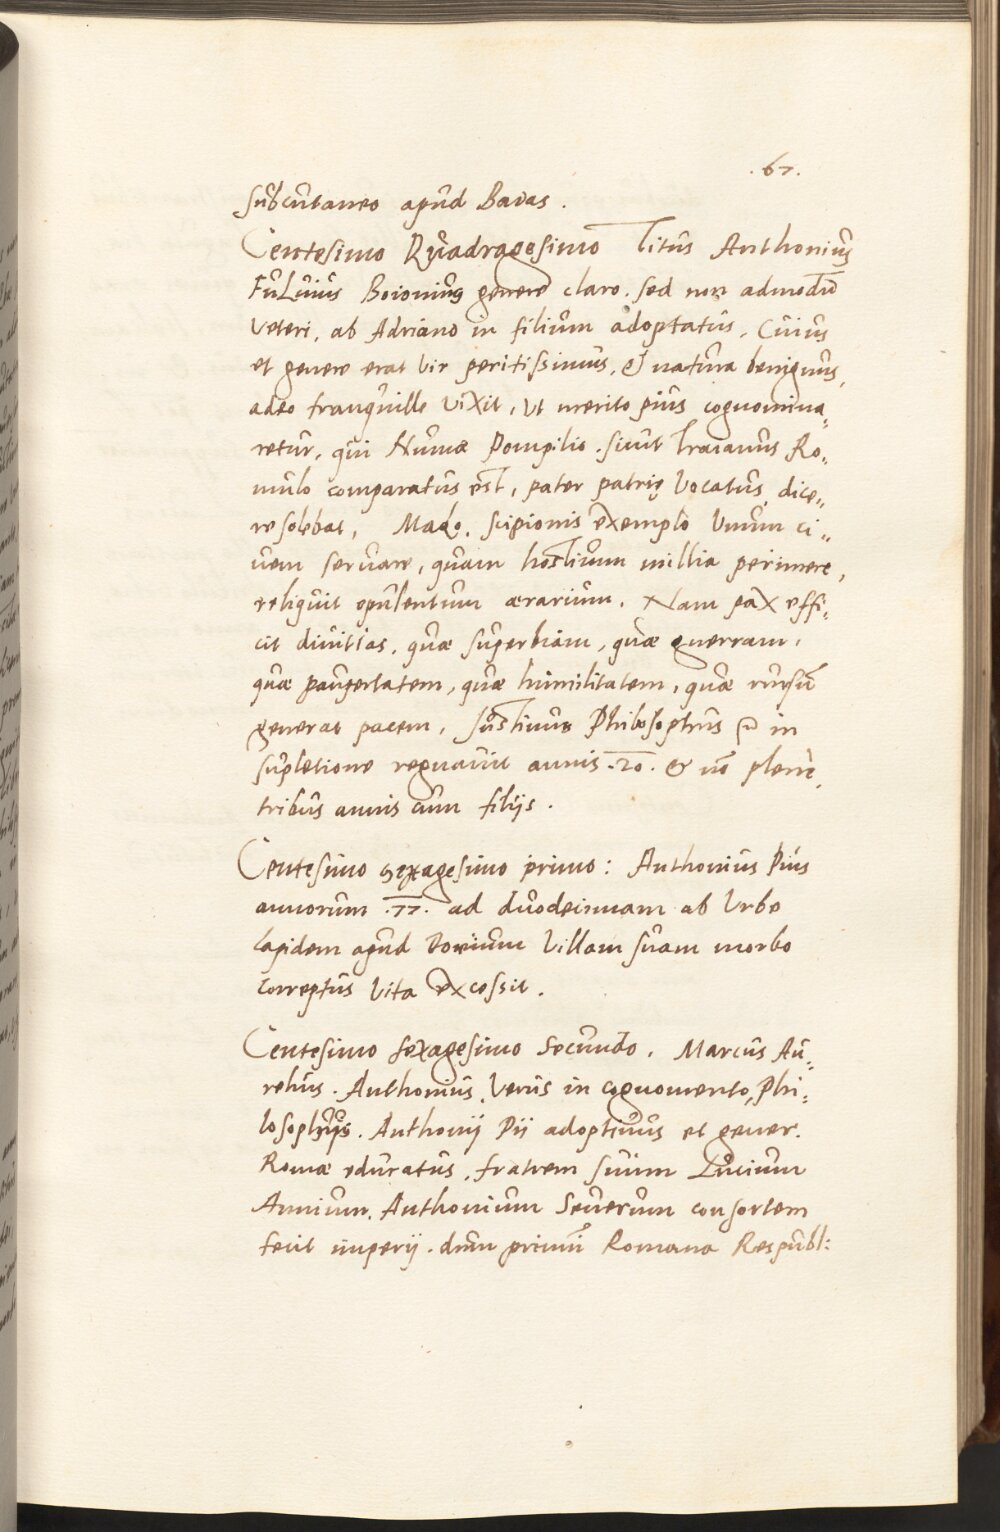 .67.
subcutaneo apud Baias.
Centesimo Quadragesimo Titus Anthonius
Fuluius Boionius genere claro. sed non admodū
veteri, ab Adriano in filium adoptatus. Cuius
et genere erat vir peritissimus, & natura benignus,
adeo tranquille vixit, ut merito pius cognomina„
retur, qui Numæ Pompilio. sicut Traianus Ro„
mulo comparatus est, pater patrię vocatus, dice„
re solebat, Malo. scipionis exemplo vnum ci„
uem seruare, quam hostium millia perimere,
reliquit opulentum ærarium. Nam pax effi„
cit diuitias, quæ superbiam, quæ guerram,
quæ paupertatem, quæ humilitatem, quæ rursū
generat pacem. Iustinus Philosophus in
supletione regnauit annis .20. & nō plenè,
tribus annis cum filijs.
Centesimo sexagesimo primo: Anthonius Pius
annorum .77. ad duodeimam ab Vrbe
lapidem apud villam suam morbo
correptus vita excessit.
Centesimo sexagesimo secundo. Marcus Au„
relius. Anthonius, Verus in cognomento, Phi„
losophus. Anthonij Pii adoptiuus et gener.
Romæ eduratus, fratrem suum Lucium
Annium. Anthonium Seuerum consortem
fecit imperij. dum primū Romana Respubl: